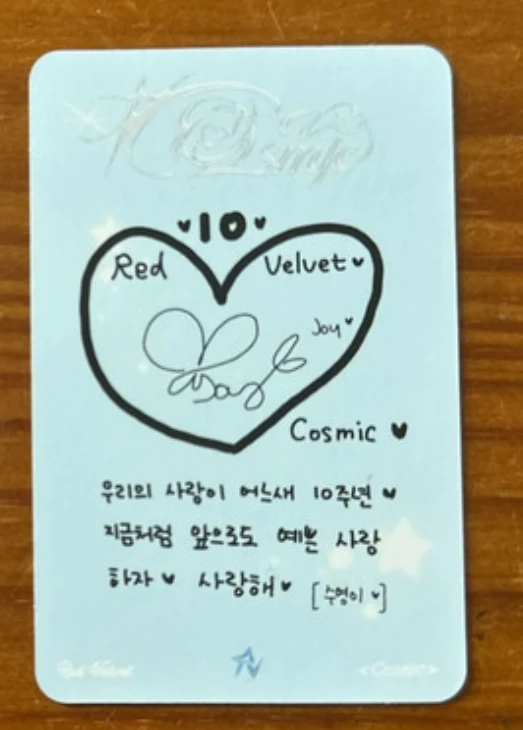 Cosmic
♥10♥
Red Velvet♥
Joy♥
Cosmic ♥
우리의 사랑이 어느새 10주년 ♥
지금처럼 앞으로도 예쁜 사랑
하자 ♥ 사랑해 ♥ [수영이 ♥]
Red Velvet <Cosmic>